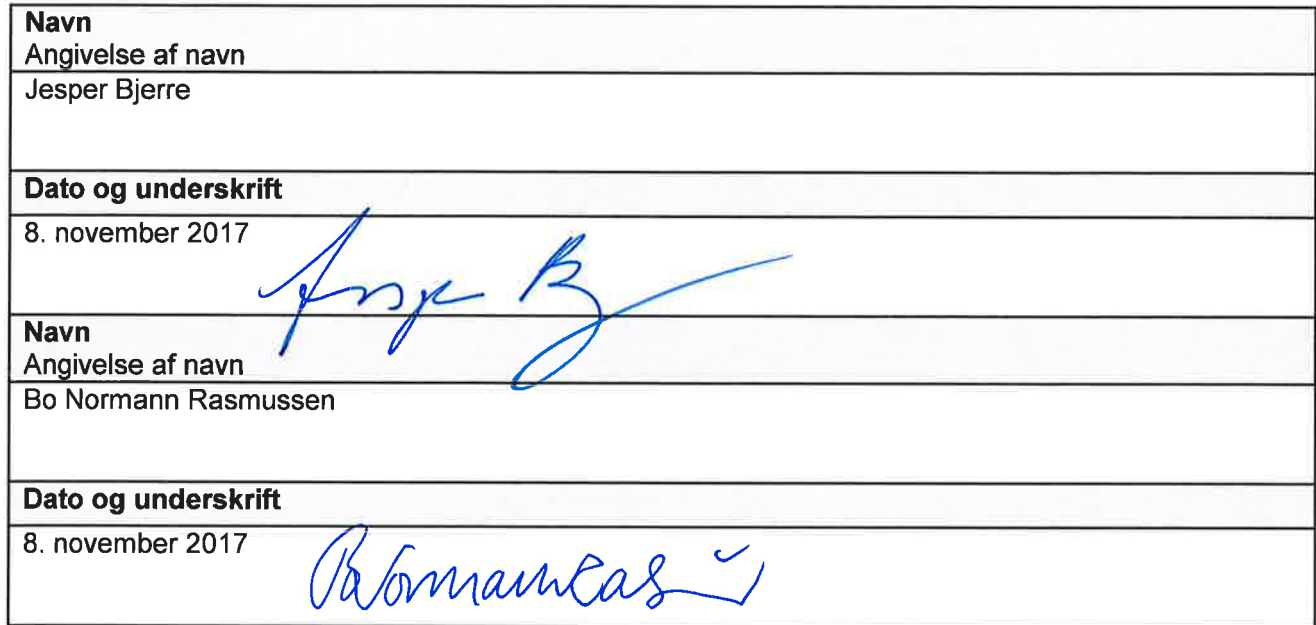 Navn
Angivelse af navn
Jesper Bjerre
Dato og underskrift
8. november 2017
Navn
Angivelse af navn
Bo Normann Rasmussen
Dato og underskrift
8. november 2017